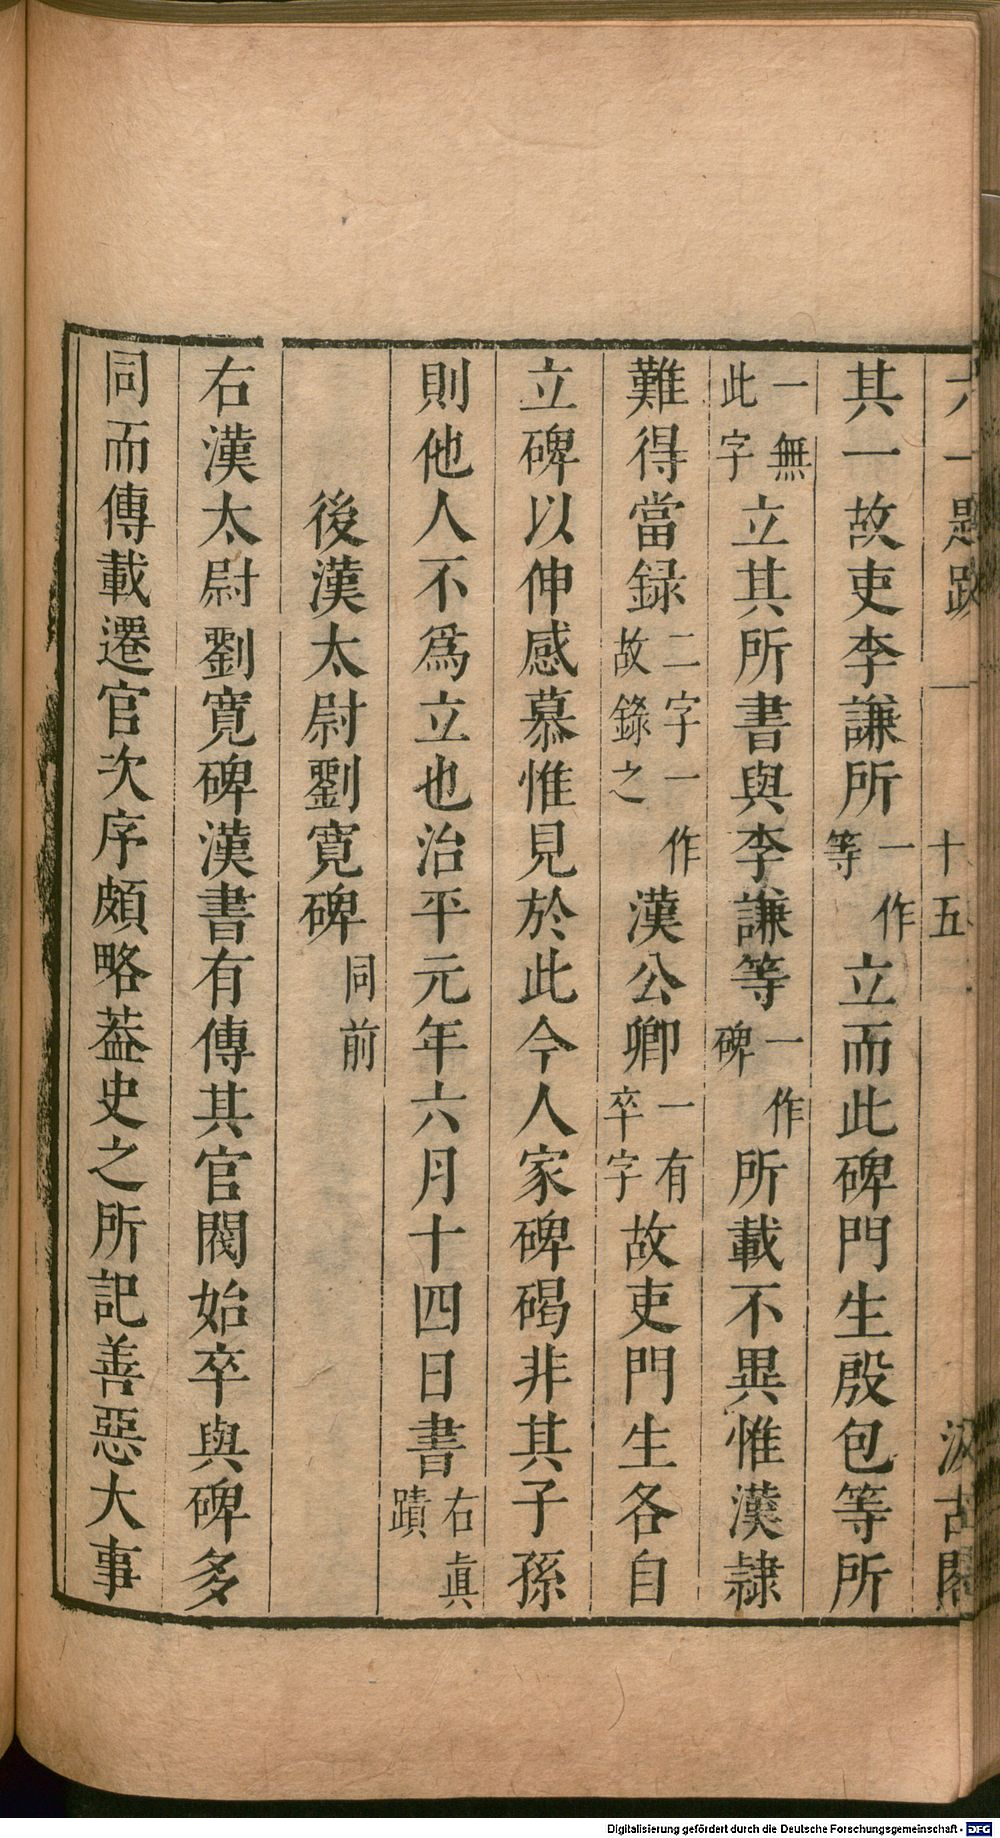 六一題跋 十五 汲古閣
其一故吏李謙所一作等立而此碑門生殷包等所
一無此字立其所書與李謙等一作碑所載不異惟漢隷
難得當録二字一作故錄之漢公卿一有卒字故吏門生各自
立碑以伸感慕惟見於此今人家碑碣非其子孫
則他人不爲立也治平元年六月十四日書右眞蹟
後漢太尉劉寬碑同前
右漢太尉劉寬碑漢書有傳其官閥始卒與碑多
同而傳載遷官次序頗略葢史之所記善惡大事
Digitalisierung gefördert durch die Deutsche Forschungsgemeinschaft - DFG